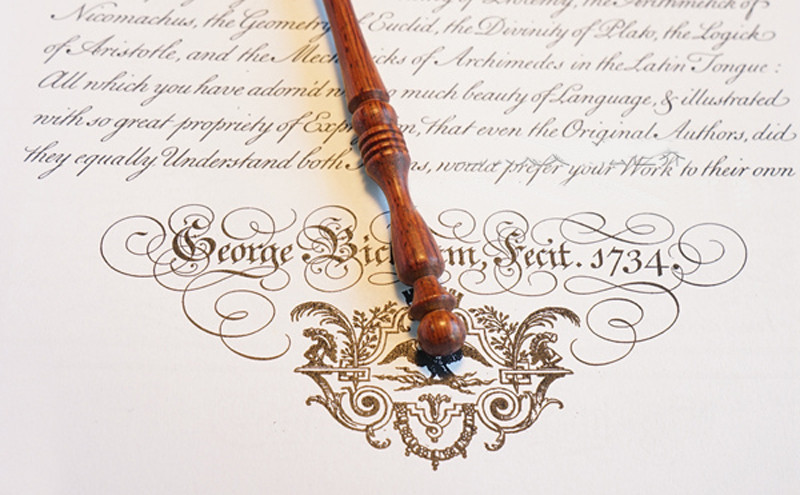 of Ptolemy, the Arithmetick of
Nicomachus, the Geometry of Euclid, the Divinity of Plato, the Logick
of Aristotle, and the of Archimedes in the Latin Tongue:
All which you have adorn'd much beauty of Language, & illustrated
with so great propriety of that even the Original Authors, did
they equally Understand both would prefer your Work to their own
George Fecit. 1734.